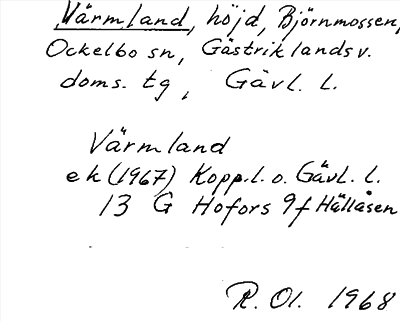 Värmland, höjd, Björnmossen,
Ockelbo sn, Gästriklands v.
doms. tg, Gävl. l.
Värmland
ek (1967) Kopp.l. o. Gävl. l.
13 G Hofors 9f Hällåsen
R. Ol. 1968